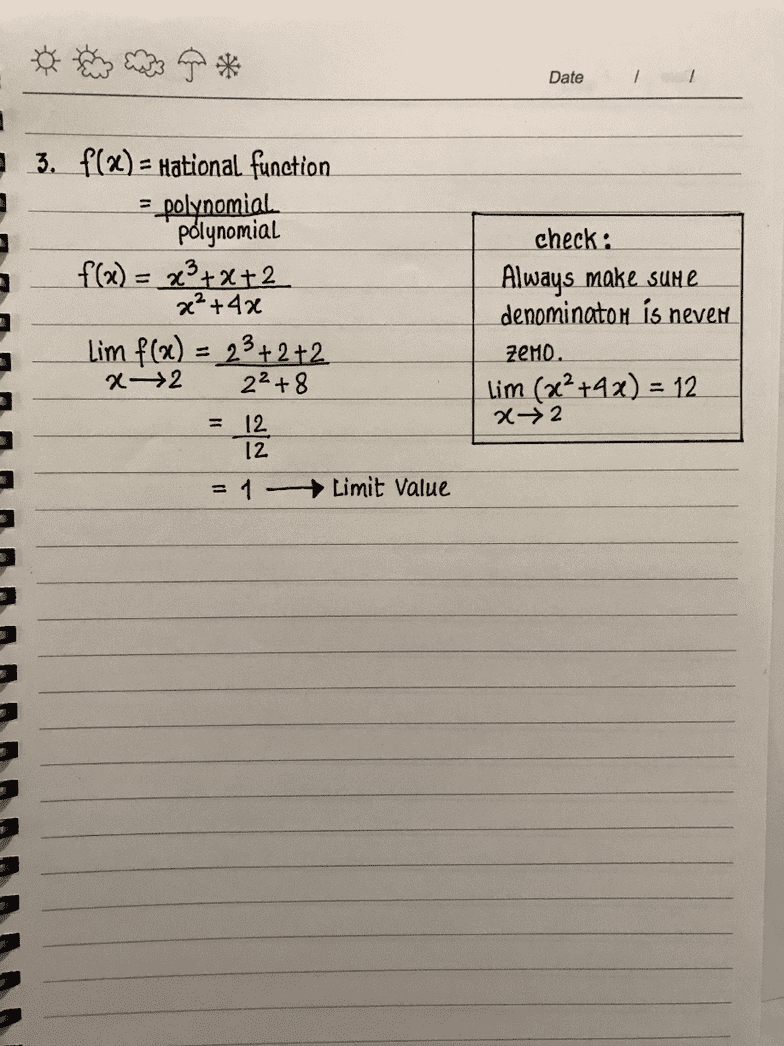 Date / /
3. f(x) = rational function
= polynomial
polynomial
f(x) = x³+x+2
x²+4x
Lim f(x) = 2³+2+2
x→2 2²+8
= 12
12
= 1 → Limit Value
check:
Always make sure
denominator is never
zero.
lim (x²+4x) = 12
x→2